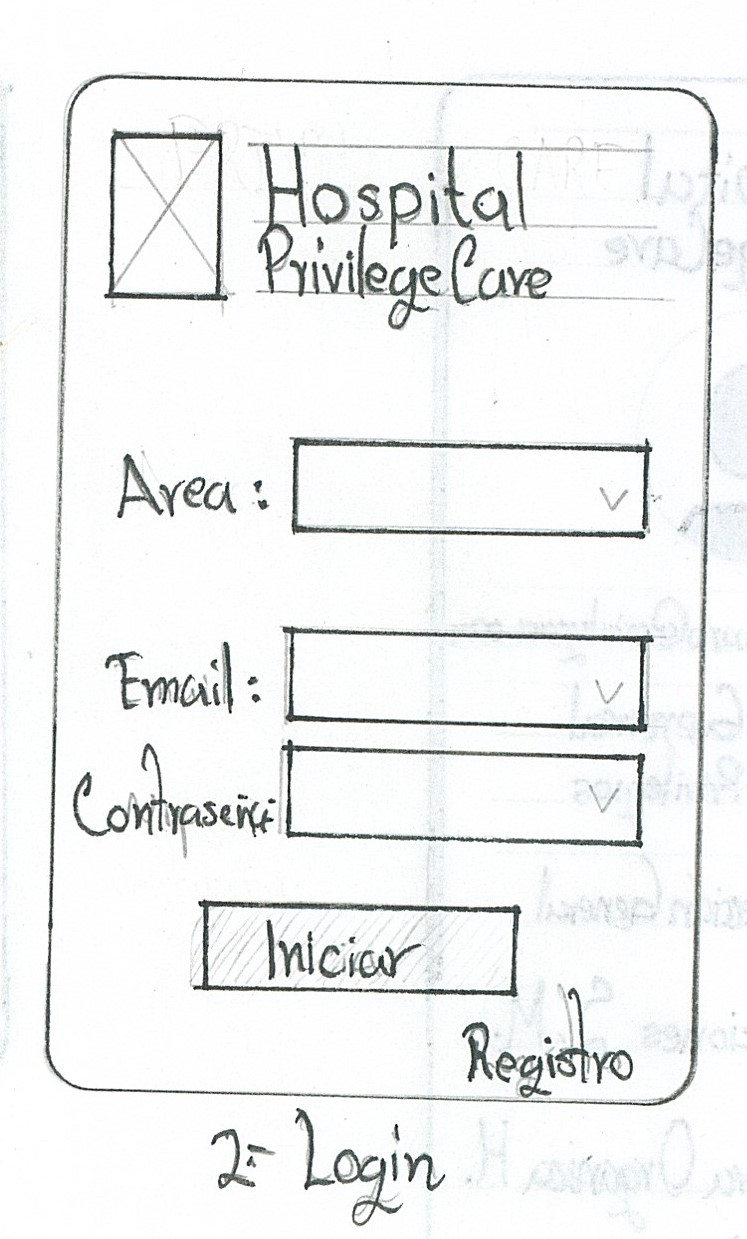 Hospital
PrivilegeCare
Area:
Email:
Contraseña:
Iniciar
Registro
2- Login